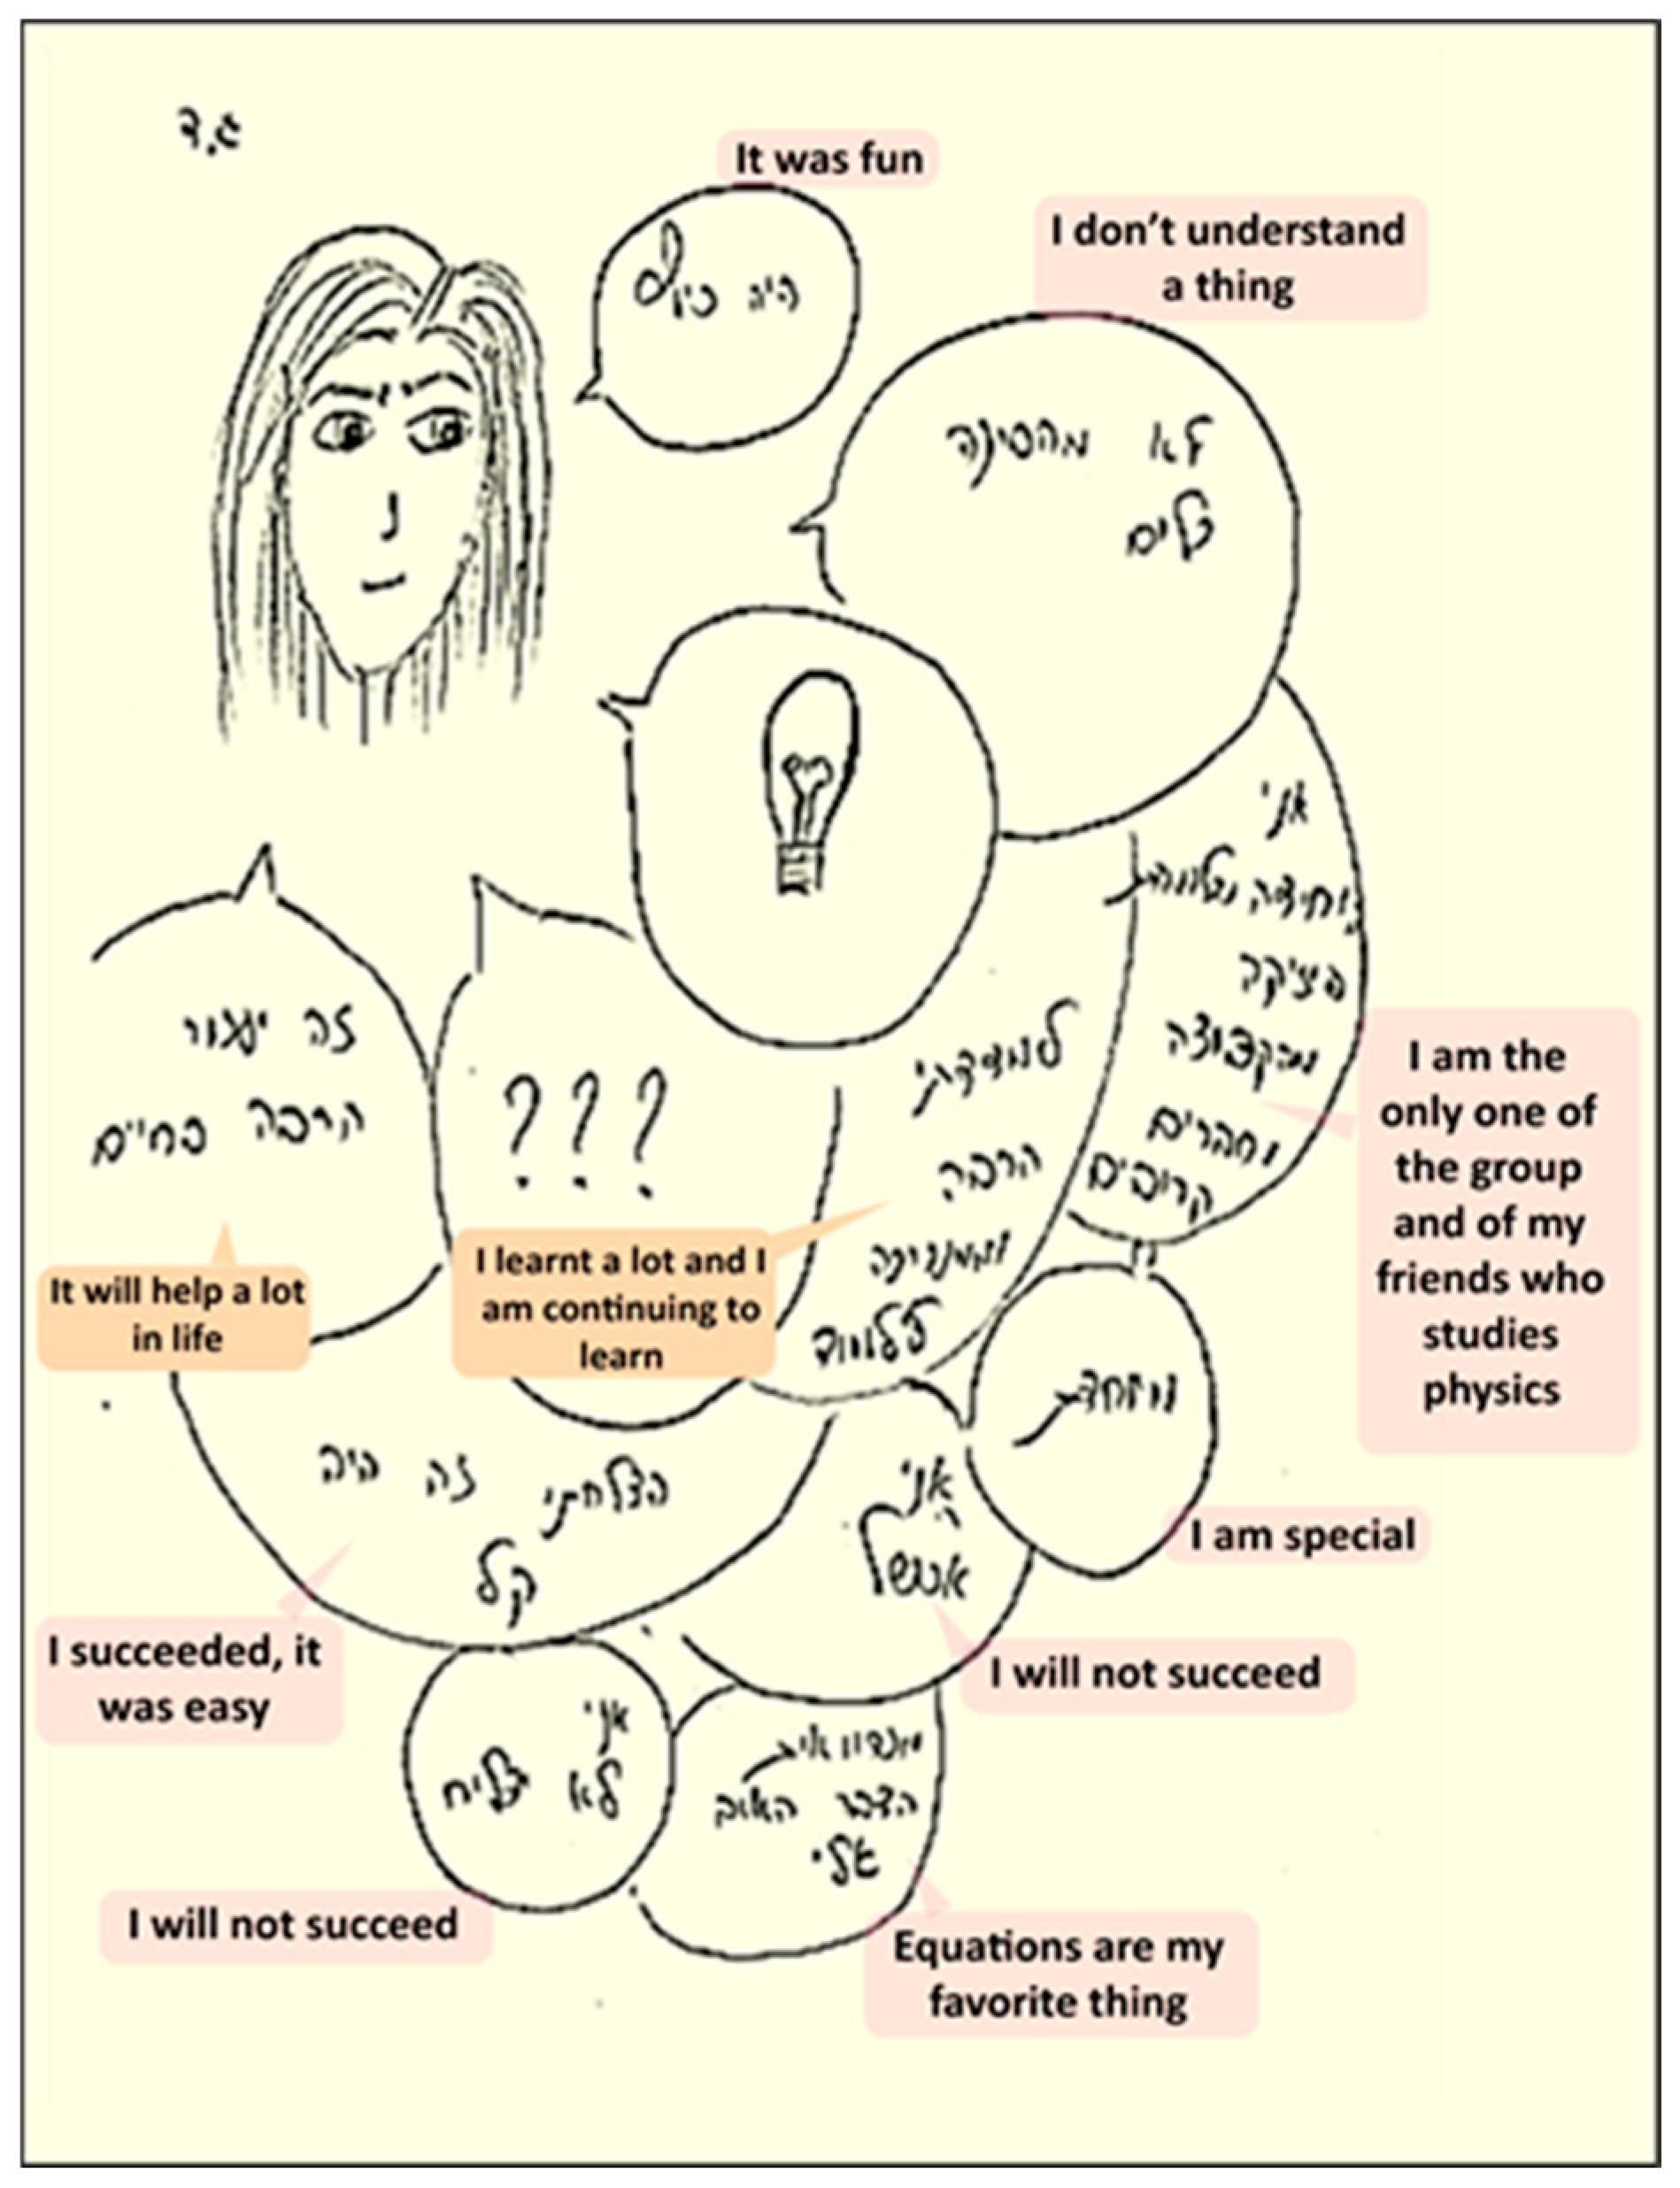 It was fun
היה כיף
I don't understand
a thing
לא
אני
שלומדת
פיזיקה
מהקבוצה
וחברים
קרובים
I am the
only one of
the group
and of my
friends who
studies
physics
זה יעזור
הרבה בחיים
It will help a lot
in life
? ? ?
למדתי
הרבה
וממשיכה
ללמוד
I learnt a lot and I
am continuing to
learn
מיוחדת
I am special
הצלחתי זה היה
קל
I succeeded, it
was easy
אני
אכשל
I will not succeed
אני
לא אצליח
I will not succeed
משוואות
הדבר האהוב
עלי
Equations are my
favorite thing